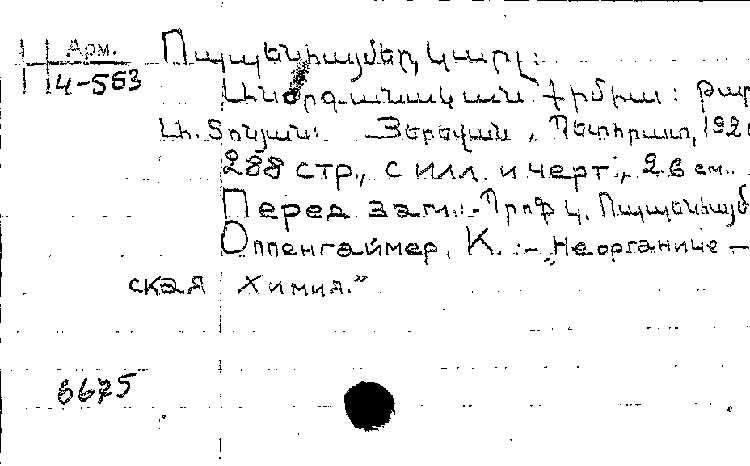 Арм.
4-563
Պապենհայմեր, Կարլ:
Անօրգանական քիմիա: թար
Տոնյան: Յերեվան, Պետհրատ, 192
288 стр., с илл. и черт., 26 см.
Перед заг.:- Պրոֆ Կ.
Оппенгаймер, К. :- „Неорганиче-
ская химия.”
6675